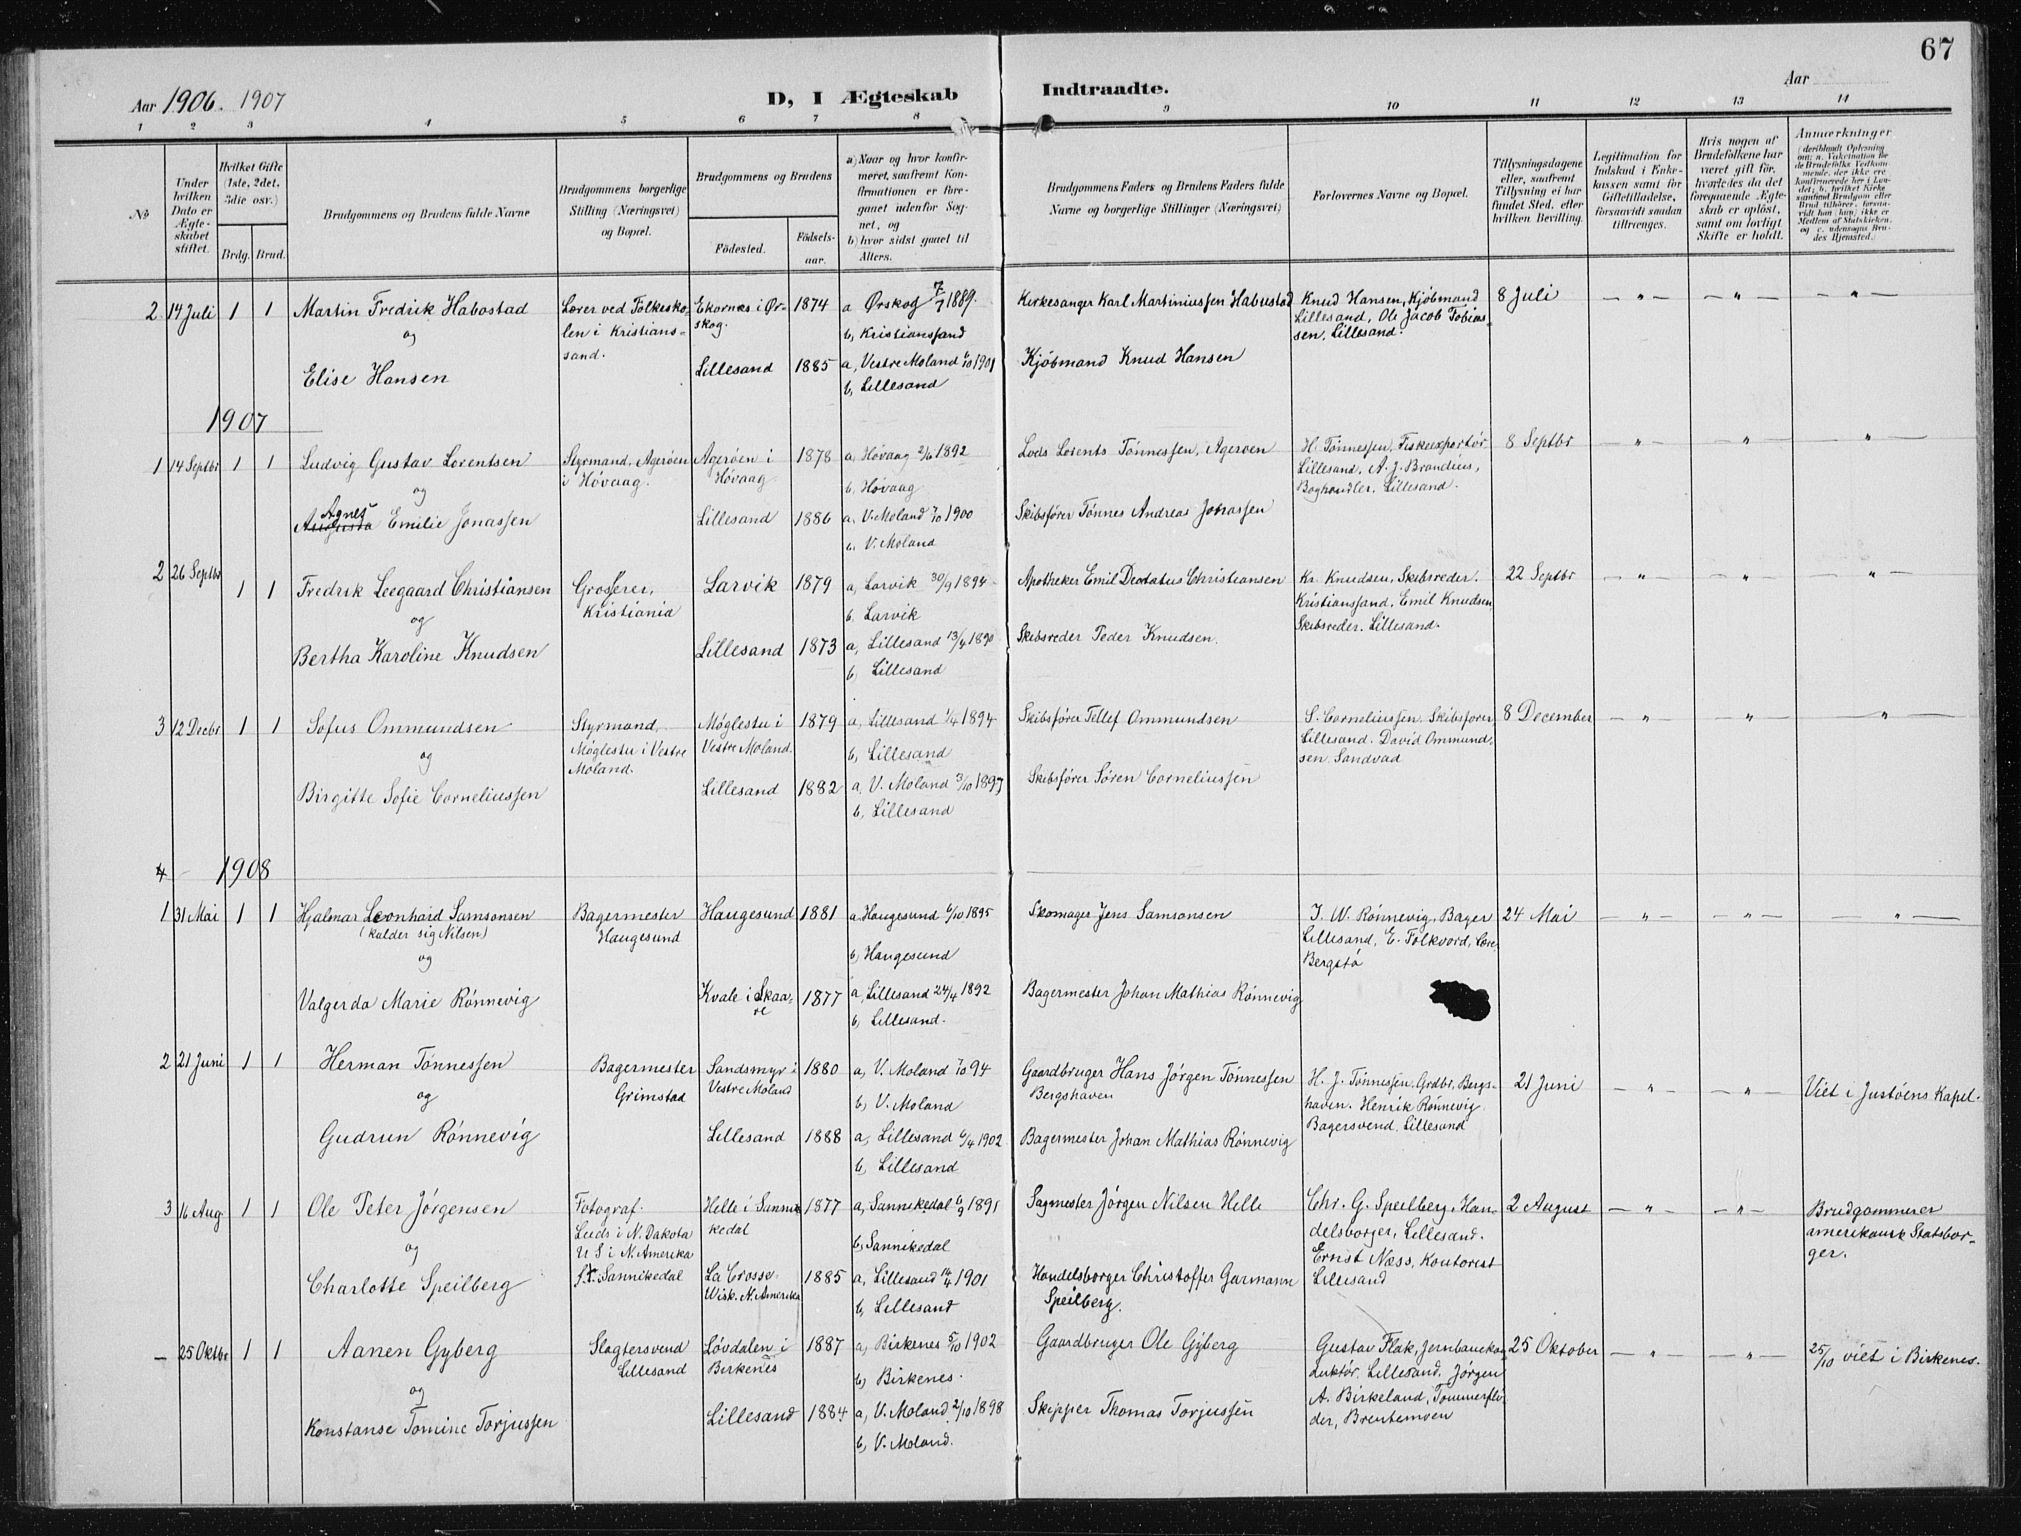 67
Aar 1906. 1907
D, I Ægteskab Indtraadte.
Aar
1 2 3 4 5 6 7 8 9 10 11 12 13 14
No
Under hvilken Dato er Ægteskabet stiftet.
Hvilket Gifte (1ste, 2det, 3die osv.)
Brdg. Brud.
Brudgommens og Brudens fulde Navne
Brudgommens borgerlige Stilling (Næringsvei) og Bopæl.
Brudgommens og Brudens
Födested.
Födselsaar.
a) Naar og hvor konfirmeret, saafremt Konfirmationen er foregaaet udenfor Sognet, og
b) hvor sidst gaaet til Alters.
Brudgommens Faders og Brudens Faders fulde Navne og borgerlige Stillinger (Næringsvei)
Forlovernes Navne og Bopæl.
Tillysningsdagene eller, saafremt Tillysning ei har fundet Sted, efter hvilken Bevilling.
Legitimation for Indskud i Enkekassen samt for Giftetilladelse, forsaavidt saadan tiltrænges.
Hvis nogen af Brudefolkene har været gift før, hvorledes da det foregaaende Ægteskab er oplöst, samt om lovligt Skifte er holdt.
Anmærkninger
2 14 Juli 1 1 Martin Fredrik Habostad
og
Elise Hansen
Lærer ved Folkeskolen i Kristianssand.
Ekornes i Ørskog. 1874
a Ørskog 7/7 1889.
b, Kristianssand
Lillesand 1885
a, Vestre Moland 6/10 1901
b, Lillesand
Kirkesanger Karl Martiniussen Habustad
Kjøbmand Knud Hansen
Knud Hansen, Kjøbmand
Lillesand, Ole Jacob Tobiassen, Lillesand.
8 Juli — " — — " — — " —
1907
1 14 Septbr 1 1 Ludvig Gustav Lorentsen
og
Agnes
Augusta Emilie Jonassen
Styrmand, Agerøen
i Høvaag.
Agerøen i
Høvaag 1878
a, Høvaag 2/6 1892
b, Høvaag
Lillesand 1886
a, V. Moland 7/10 1900
b. V. Moland
Lods Lorents Tønnessen, Agerøen
Skibsfører Tønnes Andreas Jonassen
H. Tønnessen, Fiskeexportør
Lillesand, A. J. Brandius,
Boghandler, Lillesand.
8 Septbr — " — " "
2 26 Septbr 1 1 Fredrik Leegaard Christiansen
og
Bertha Karoline Knudsen
Grosserer,
Kristiania
Larvik 1879
a, Larvik 30/9 1894
b. Larvik
Lillesand 1873
a, Lillesand 13/4 1890
b, Lillesand
Apotheker Emil Deodatus Christiansen
Skibsreder Peder Knudsen.
Kr. Knudsen, Skibsreder.
Kristianssand, Emil Knudsen
Skibsreder. Lillesand.
22 Septbr — " — — " — "
3 12 Decbr 1 1 Sofus Ommundsen
og
Birgitte Sofie Corneliussen
Styrmand,
Møglestu i Vestre
Moland.
Møglestu i
Vestre Moland. 1879
a, Lillesand 1/4 1894
b, Lillesand
Lillesand 1882
a, V. Moland 3/10 1897
b, Lillesand
Skibsfører Tellef Ommundsen
Skibsfører Søren Corneliussen
S. Corneliussen, Skibsfører
Lillesand. David Ommundsen
Sandvad
8 December — " — — " — "
4
1908
1 31 Mai 1 1 Hjalmar Leonhard Samsonsen
(kalder sig Nilsen)
og
Valgerda Marie Rønnevig
Bagermester
Haugesund
Haugesund 1881
a. Haugesund 6/10 1895
b, Haugesund
Kvale i Skaare 1877
a, Lillesand 24/4 1892
b, Lillesand.
Skomager Jens Samsonsen
Bagermester Johan Mathias Rønnevig
J. W. Rønnevig, Bager
Lillesand, E. Folkvord, Lærer
Bergstø
24 Mai — " — — " — — " —
2 21 Juni 1 1 Herman Tønnessen
og
Gudrun Rønnevig
Bagermester
Grimstad
Sandsmyr i
Vestre Moland 1880
a, V. Moland 7/10 94
b, V. Moland
Lillesand 1888
a, Lillesand 6/4 1902
b, Lillesand
Gaardbruger Hans Jørgen Tønnessen
Bergshaven
Bagermester Johan Mathias Rønnevig
H. J. Tønnessen, Grdbr, Bergshaven.
Henrik Rønnevig
Bagersvend, Lillesand
21 Juni — " — — " —
Viet i Justøens Kapel.
3 16 Aug 1 1 Ole Peter Jørgensen
og
Charlotte Speilberg
Fotograf
Leeds i N. Dakota
U S i N. Amerika
f. t. Sannikedal
Helle i Sannikedal 1877
a, Sannikedal 6/9 1891
b, Sannikedal
La Crosse
Wisk. N. Amerika 1885
a, Lillesand 14/4 1901
b, Lillesand
Sagmester Jørgen Nilsen Helle
Handelsborger Christoffer Garmann
Speilberg.
Chr. G. Speilberg, Handelsborger,
Lillesand.
Ernst Næss, Kontorist
Lillesand
2 August — " — — " —
Brudgommen er
amerikansk Statsborger.
— 25 Oktbr 1 1 Aanen Gyberg
og
Konstanse Tomine Torjussen
Slagtersvend
Lillesand
Løvdalen i
Birkenes 1887
a, Birkenes 5/10 1902
b, Birkenes.
Lillesand 1884
a, V. Moland 2/10 1898
b, V. Moland.
Gaardbruger Ole Gyberg
Skipper Thomas Torjussen
Gustav Flak, Jernbanekonduktør,
Lillesand, Jørgen
A. Birkeland, Tømmerfløder,
Brentemoen
25 Oktober — " — — " —
25/10 viet i Birkenes.